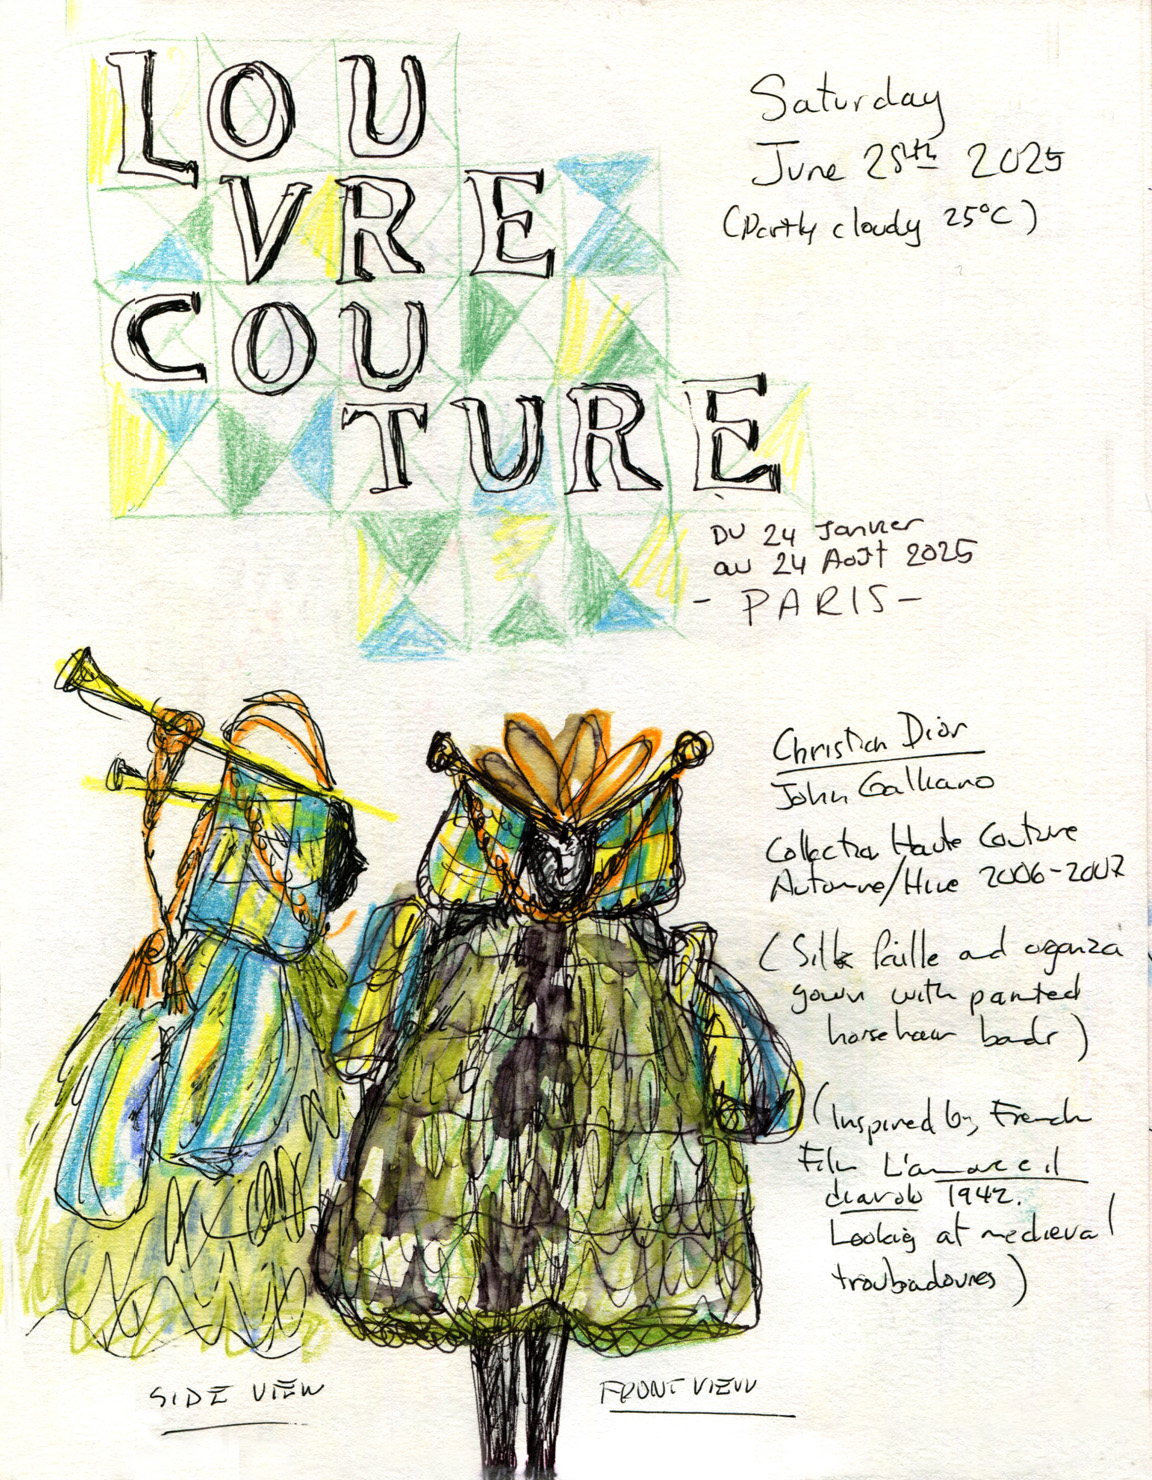 LOU
VRE
COU
TURE
Saturday
June 28th 2025
(Partly cloudy 25°C)
DU 24 Janvier
au 24 Août 2025
- PARIS -
Christian Dior
John Galliano
Collection Haute Couture
Automne/Hiver 2006-2007
(Silk faille and organza
gown with painted
horsehair bands)
(Inspired by French
Film L'amore e il
diavolo 1942.
Looking at medieval
troubadoures)
SIDE VIEW
FRONT VIEW